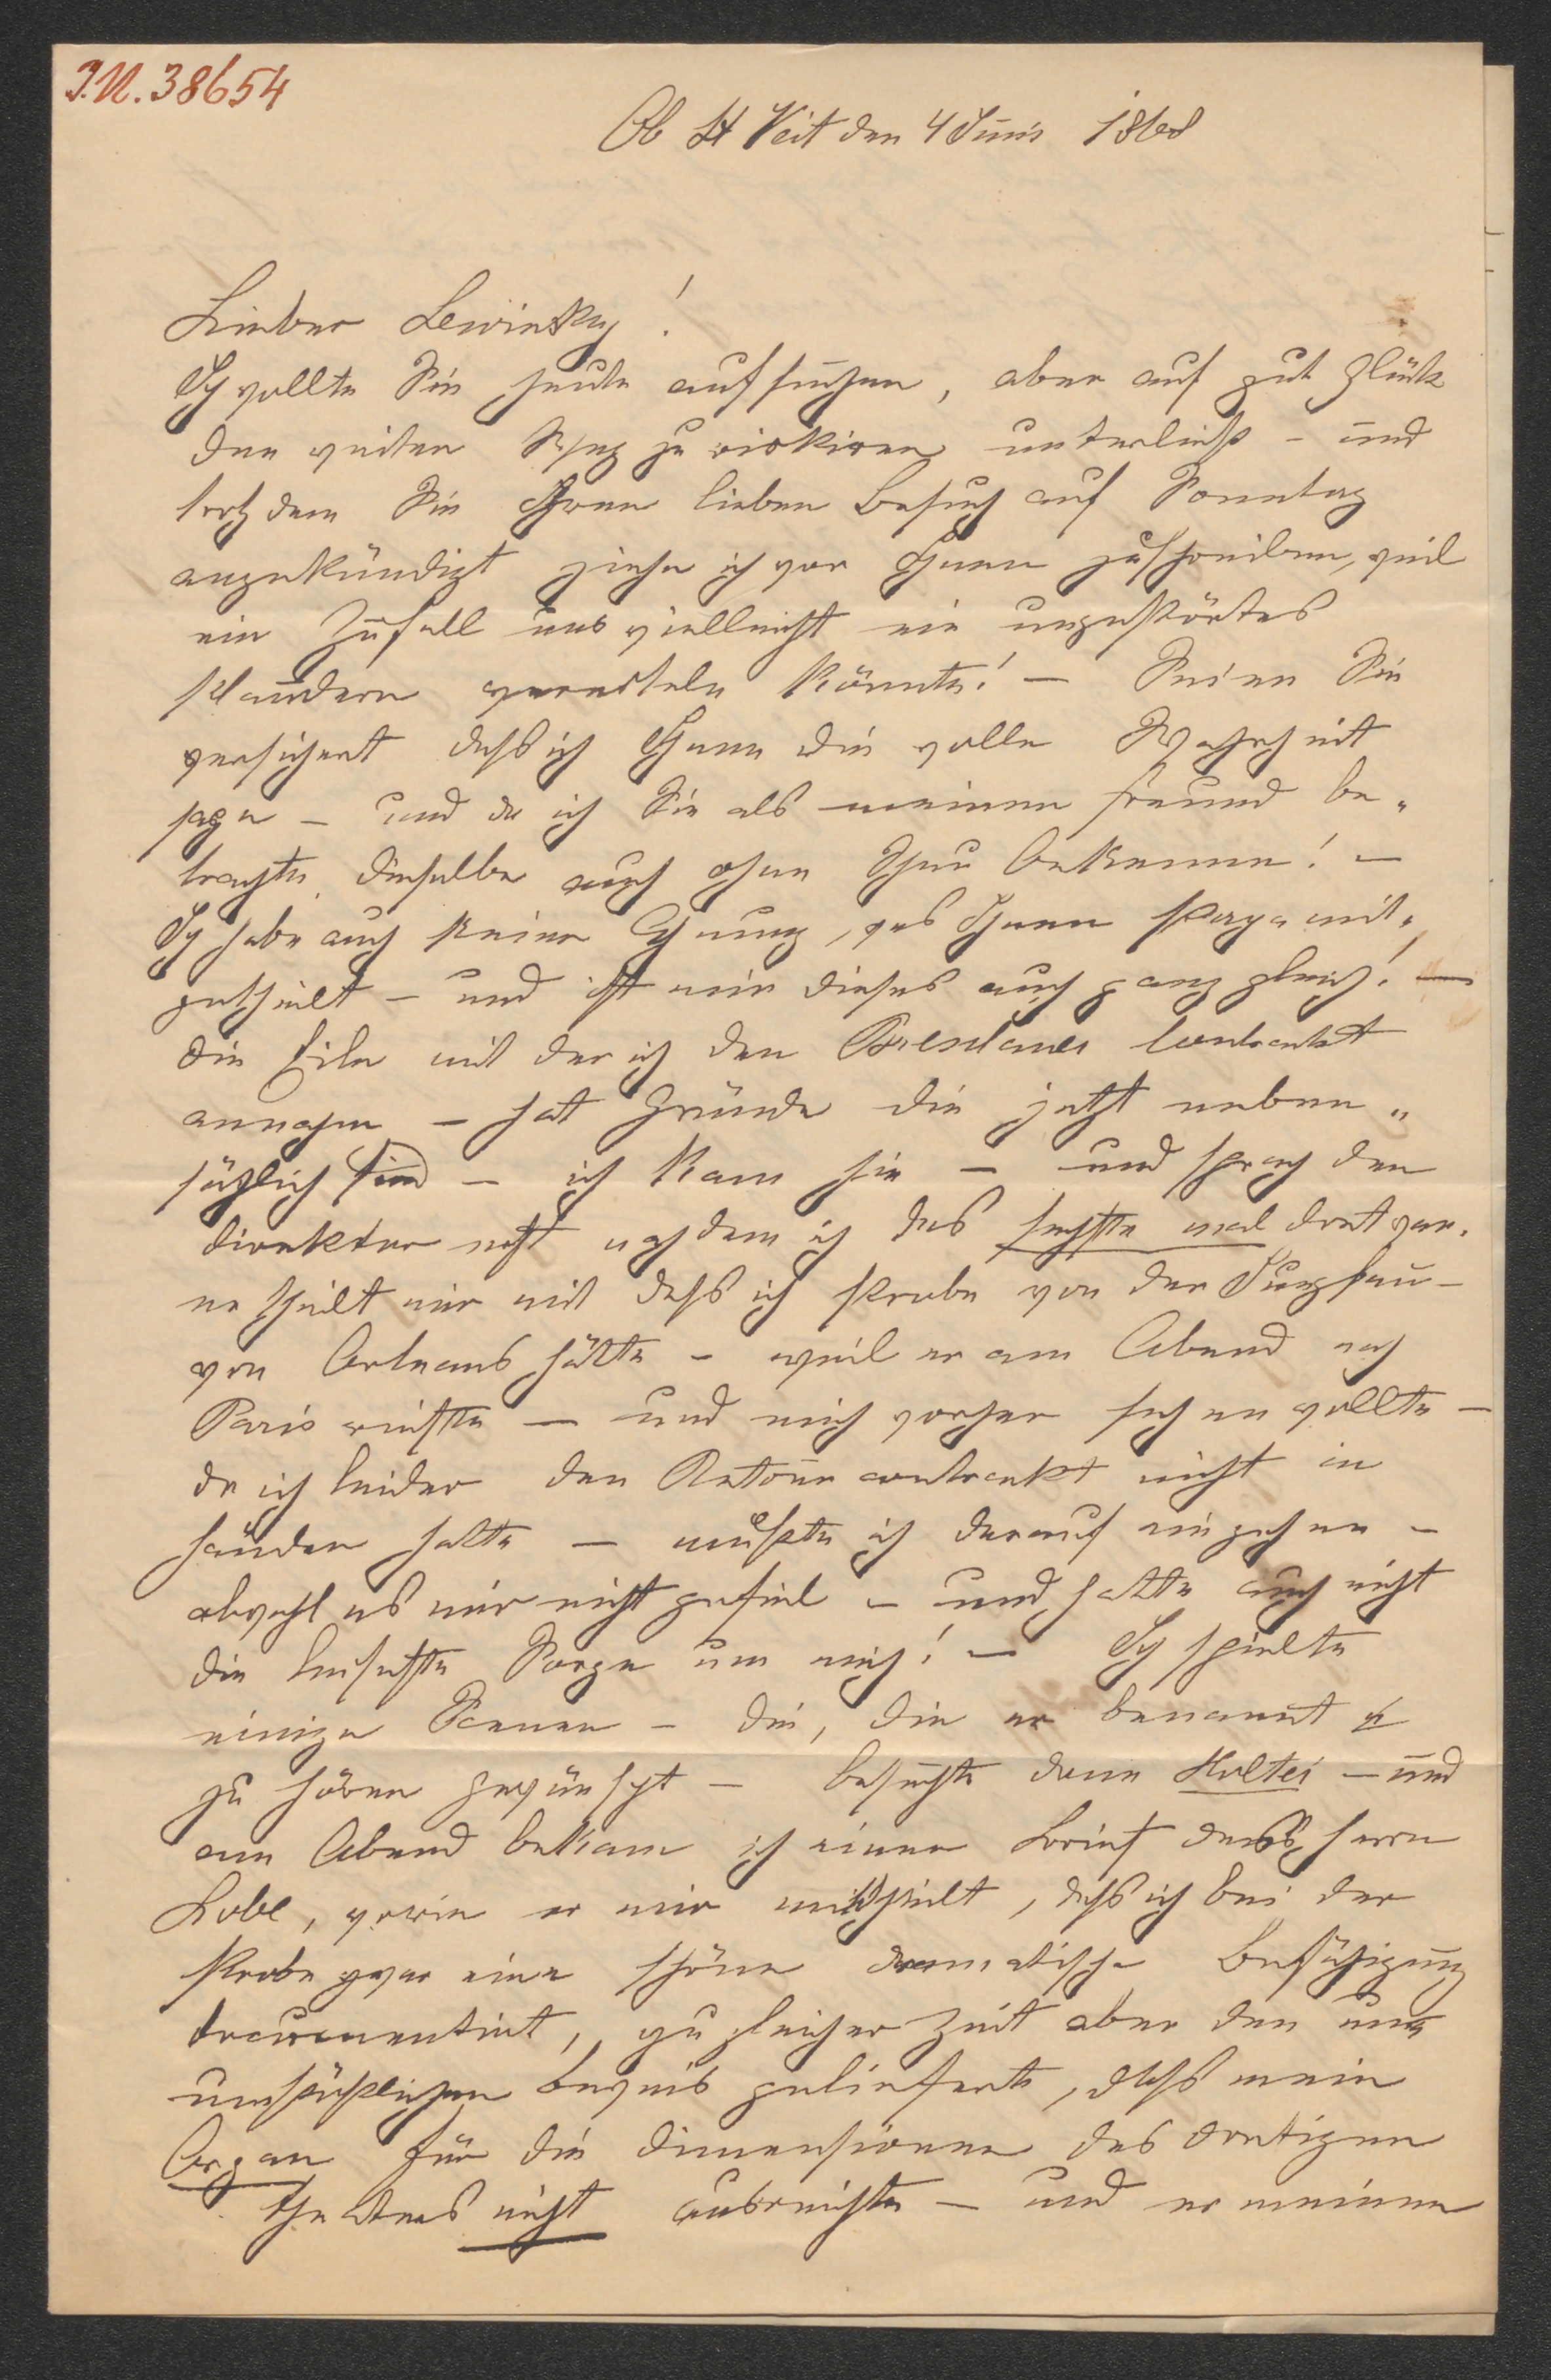 I.N. 38654
Ob St Veit den 4 Juni 1868
Lieber Lewinsky!
Ich wollte Sie heute aufsuchen, aber auf gut Glück
den weiten Weg zu riskiren unterließ – und
trotzdem Sie Ihren lieben Besuch auf Sonntag
angekündigt ziehe ich vor Ihnen zuschreiben, weil
ein Zufall uns vielleicht ein ungestörtes
Plaudern vereiteln könnte! – Seien Sie
versichert daß ich Ihnen die volle Wahrheit
sage – und da ich Sie als meinen Freund be„
trachte dieselbe auch ohne Scheu bekenne! –
Ich habe auch keine Ahnung, was Ihnen mit„
getheilt – und ist mir dieses auch ganz gleich! –
die Eile mit der ich den Breslauer Contract
annahm – hat Gründe die jetzt neben„
sächlich sind – ich kam hin – und sprach den
Direktor erst nachdem ich das sechste mal dort war.
er theilt mir mit daß ich Probe von der Jungfrau –
von Orleans hätte – weil er am Abend nach
Paris reiste – und mich vorher sehen wollte –
da ich leider den Retourcontrakt nicht in
Händen hatte – mußte ich darauf eingehen –
obwohl es mir nicht gefiel – und hatte auch nicht
die leiseste Sorge um mich! – Ich spielte
einige Scenen – die, die er benannt
zu hören gewünscht – besuchte dann Holtei – und
am Abend bekam ich einen Brief des Herrn
Lobe, worin er mir mittheilt, daß ich bei der
Probe zwar eine schöne dramatische Befähigung
documentirt, zu gleicher Zeit aber den
umstößlichen Beweis gelieferte, daß mein
Organ für die Dimensionen des dortigen
Theaters nicht ausreichte – und er meinen